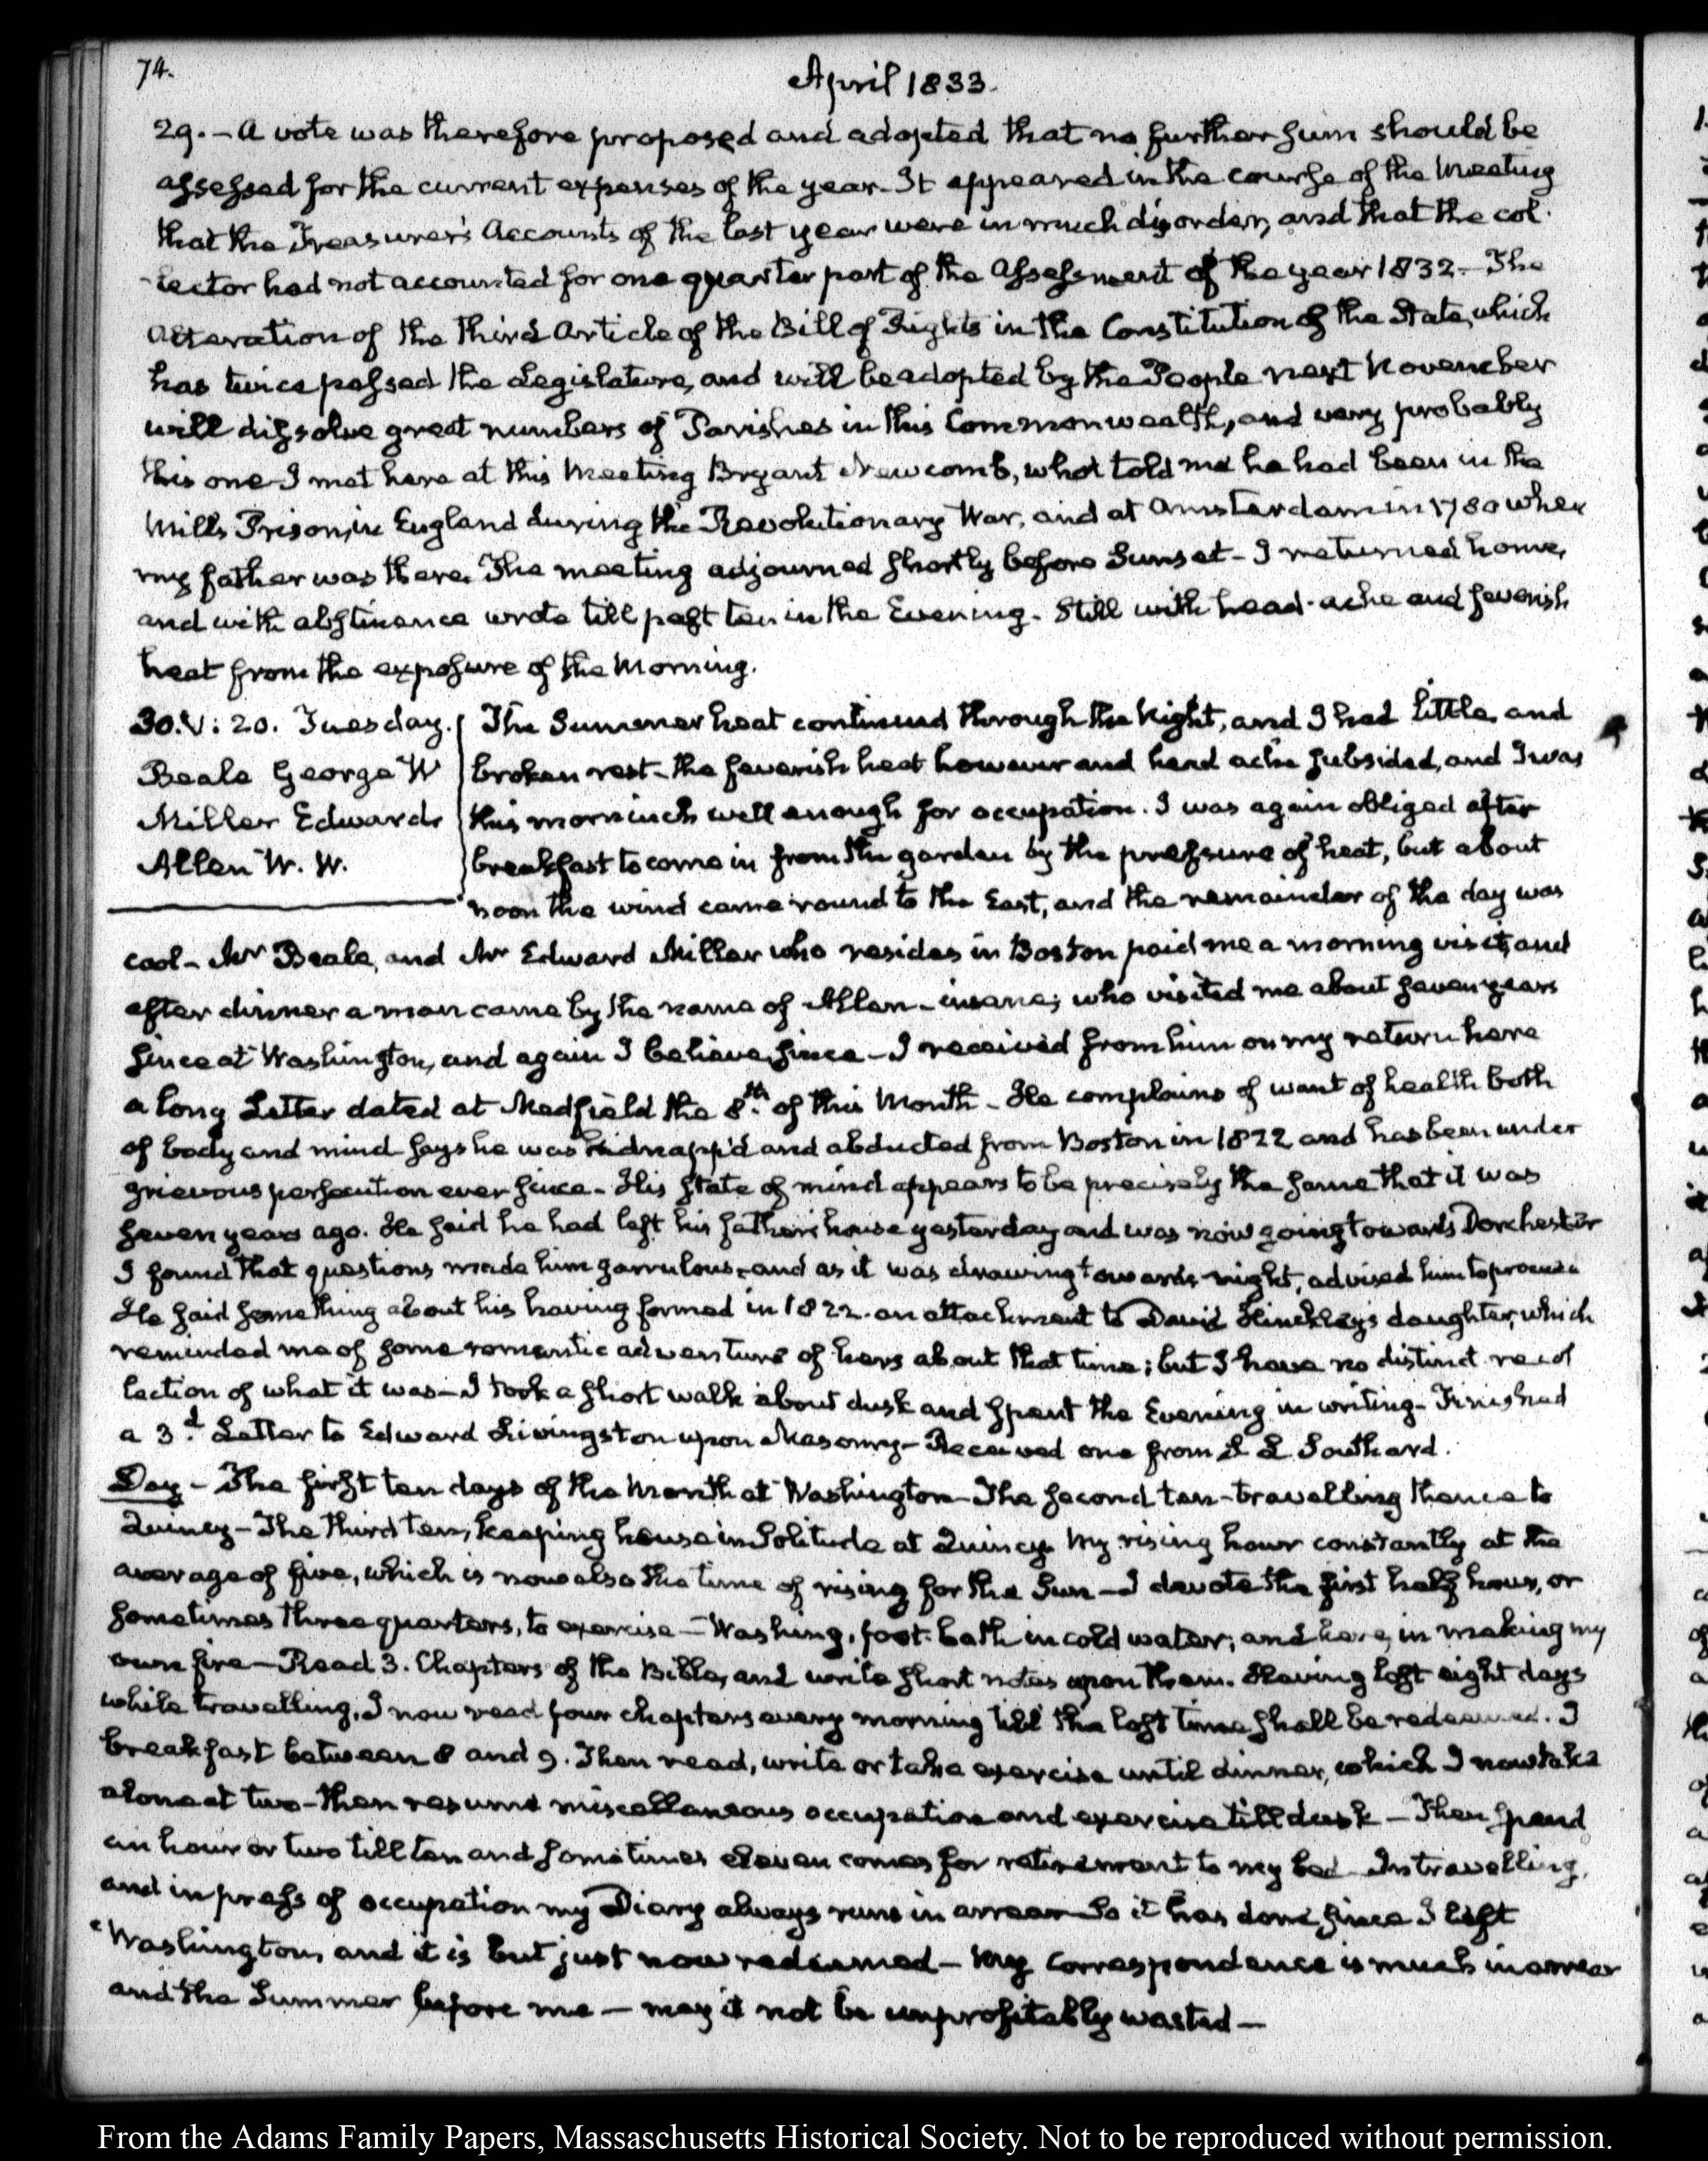 74.
April 1833.
29. – A vote was therefore proposed and adopted that no further sum should be
assessed for the current expenses of the year. It appeared in the course of the Meeting
that the Treasurer's Accounts of the last year were in much disorder, and that the col-
-lector had not accounted for one quarter part of the Assessment of the year 1832. – The
alteration of the third Article of the Bill of Rights in the Constitution of the State, which
has twice passed the Legislature, and will be adopted by the People next November
will dissolve great numbers of Parishes in this Commonwealth, and very probably
this one – I met here at this Meeting Bryant Newcomb, who told me he had been in the
Mills Prison, in England during the Revolutionary War, and at Amsterdam in 1780 when
my father was there. The meeting adjourned shortly before Sunset – I returned home,
and with abstinence wrote till past ten in the Evening. Still with head-ache and feverish
heat from the exposure of the Morning.
30. V: 20. Tuesday.
Beale George W
Miller Edward
Allen W. W.
The Summer heat continued through the Night, and I had little, and
broken rest – the feverish heat however and head ache subsided, and I was
this morning well enough for occupation. I was again obliged after
breakfast to come in from the garden by the pressure of heat, but about
noon the wind came round to the East, and the remainder of the day was
cool – Mr Beale, and Mr Edward Miller who resides in Boston paid me a morning visit, and
after dinner a man came by the name of Allen – insane; who visited me about seven years
since at Washington, and again I believe since – I received from him on my return here
a long Letter dated at Medfield the 8th. of this Month – He complains of want of health both
of body and mind says he was kidnapp'd and abducted from Boston in 1822 and has been under
grievous persecution ever since – His state of mind appears to be precisely the same that it was
seven years ago. He said he had left his father's house yesterday and was now going towards Dorchester
I found that questions made him garrulous, and as it was drawing towards night, advised him to proceed
He said something about his having formed in 1822. an attachment to David Hinckley's daughter, which
reminded me of some romantic adventure of hers about that time; but I have no distinct recol
lection of what it was – I took a short walk about dusk and spent the Evening in writing – Finished
a 3.d Letter to Edward Livingston upon Masonry – Received one from S L Southard.
Day – The first ten days of the Month at Washington – The second ten – travelling thence to
Quincy – The third ten, keeping house in Solitude at Quincy. My rising hour constantly at the
average of five, which is now also the time of rising for the Sun – I devote the first half hour, or
sometimes three quarters, to exercise – Washing, foot-bath in cold water; and here, in making my
own fire – Read 3. Chapters of the Bible, and write short notes upon them. Having lost eight days
while travelling, I now read four chapters every morning till the lost time shall be redeemed. I
breakfast between 8 and 9. Then read, write or take exercise until dinner, which I now take
alone at two – then resume miscellaneous occupation and exercise till dusk – Then spend
an hour or two till ten and sometimes eleven comes for retirement to my bed – In travelling,
and in press of occupation my Diary always runs in arrear – So it has done since I left
Washington, and it is but just now redeemed – My correspondence is much in arrear
and the Summer before me – may it not be unprofitably wasted –
From the Adams Family Papers, Massachusetts Historical Society. Not to be reproduced without permission.